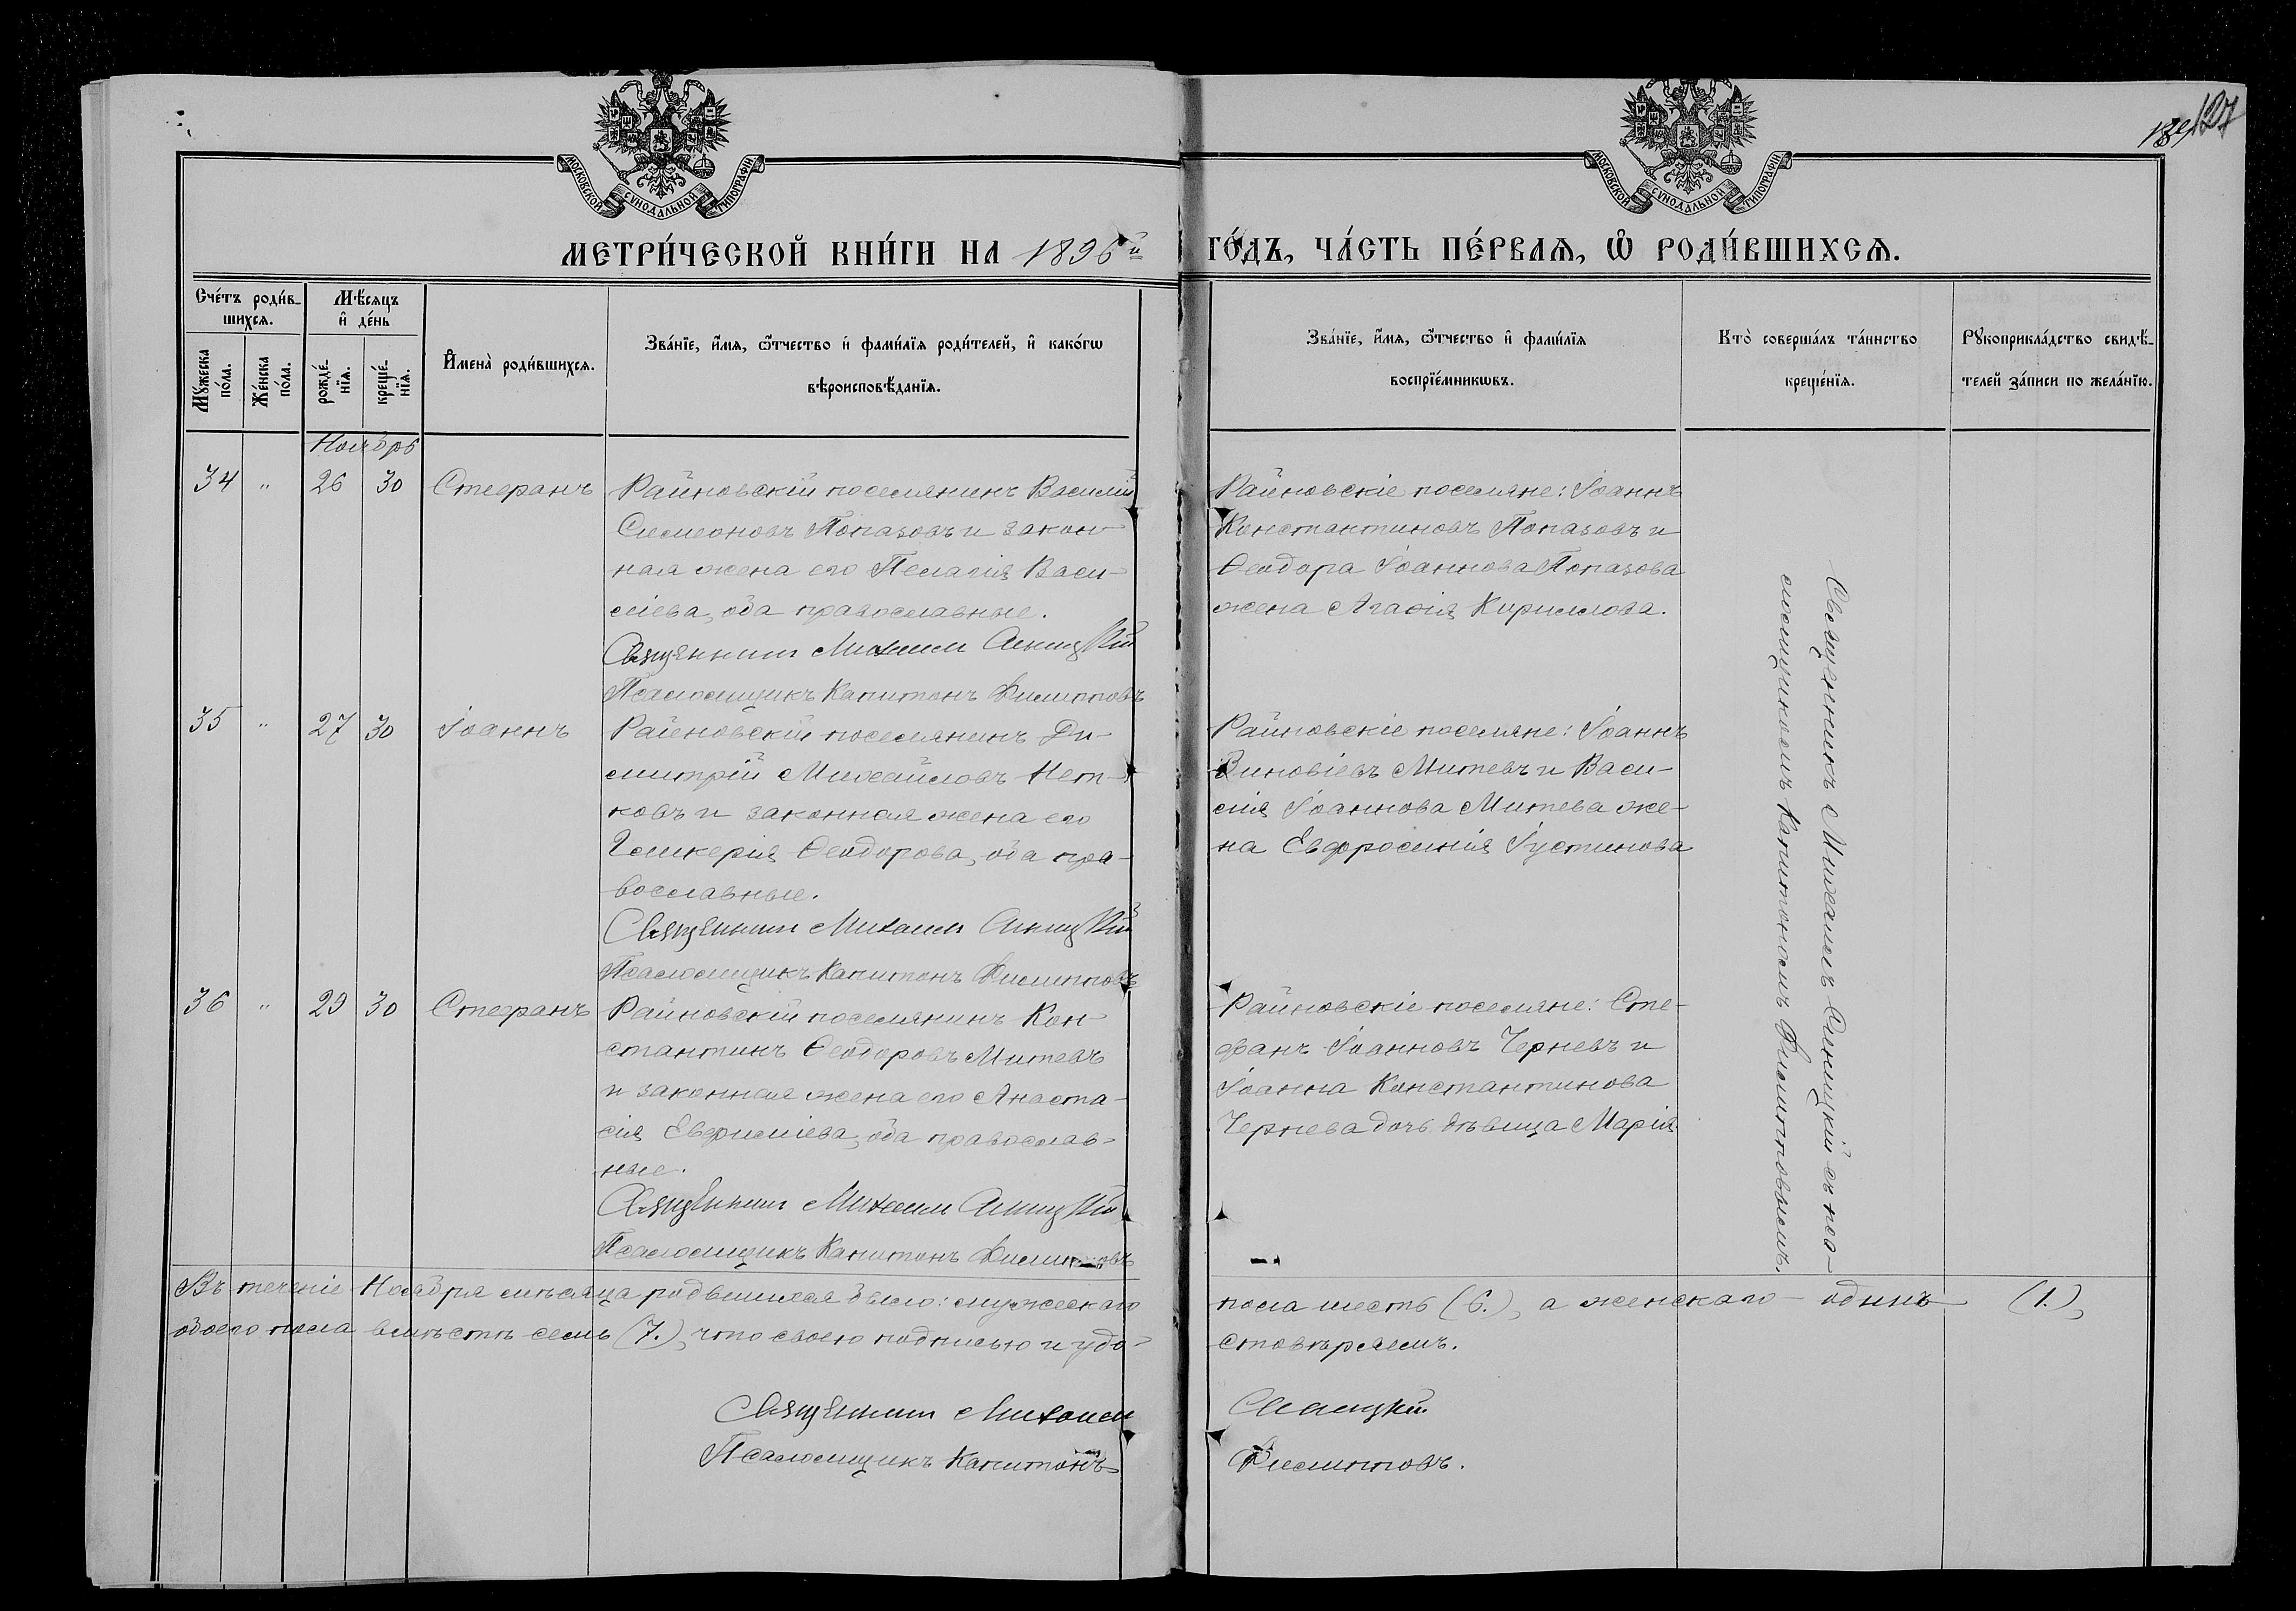 127
МОСКОВСКОЙ СѴНОДАЛЬНОЙ ТИПОГРАФІИ
МОСКОВСКОЙ СѴНОДАЛЬНОЙ ТИПОГРАФІИ
МЕТРИ́ЧЕСКОЙ КНИ́ГИ НА 1896й ГО́ДЪ, ЧА́СТЬ ПЕ́РВАѦ, Ѽ РОДИ́ВШИХСѦ.
Сче́тъ роди́в-
шихсѧ.
Мѣ́сѧцъ
и҆ де́нь
Мꙋ́жеска
по́ла.
Же́нска
по́ла.
рожде́-
нїѧ.
креще́-
нїѧ.
И҆мена̀ роди́вшихсѧ.
Зва́нїе, и҆́мѧ, ѻ҆́тчество и҆ фами́лїѧ роди́телей, и҆ како́гѡ
вѣроисповѣ́данїѧ.
Зва́нїе, и҆́мѧ, ѻ҆́тчество и҆ фами́лїѧ
воспрїе́мникѡвъ.
Кто̀ соверша́лъ та́инство
креще́нїѧ.
Рꙋкоприкла́дство свидѣ́-
телей за́писи по жела́нїю.
Ноябрь
34 „ 26 30 Стефанъ
Райновскій поселянинъ Василій
Симеоновъ Попазовъ и закон-
ная жена его Пелагія Васи-
ліева, оба православные.
Священникъ Михаилъ Синицкій
Псаломщикъ Капитонъ Филипповъ
Райновскіе поселяне: Іоаннъ
Константиновъ Попазовъ и
Ѳеодора Іоаннова Попазова
жена Агаѳія Кириллова.
35 „ 27 30 Іоаннъ
Райновскій поселянинъ Ди-
митрій Михайловъ Нет-
ковъ и законная жена его
Гликерія Ѳеодорова, оба пра-
вославные.
Священникъ Михаилъ Синицкій
Псаломщикъ Капитонъ Филипповъ
Райновскіе поселяне: Іоаннъ
Зиновіевъ Митевъ и Васи-
лія Іоаннова Митева же-
на Евфросинія Іустинова
36 „ 29 30 Стефанъ
Райновскій поселянинъ Кон-
стантинъ Ѳеодоровъ Митевъ
и законная жена его Анаста-
сія Евфиміева, оба православ-
ные.
Священникъ Михаилъ Синицкій
Псаломщикъ Капитонъ Филипповъ
Райновскіе поселяне: Сте-
фанъ Іоанновъ Черневъ и
Іоанна Константинова
Чернева дочь дѣвица Марія
Священникъ Михаилъ Синицкій съ пса-
ломщикомъ Капитономъ Филипповымъ.
Въ теченіе Ноября мѣсяца родившихся было: мужескаго пола шесть (6.), а женскаго – одинъ – (1.),
обоего пола вмѣстѣ семь (7.), что своею подписью и удо-
стовѣряемъ.
Священникъ Михаилъ Синицкій
Псаломщикъ Капитонъ Филипповъ.